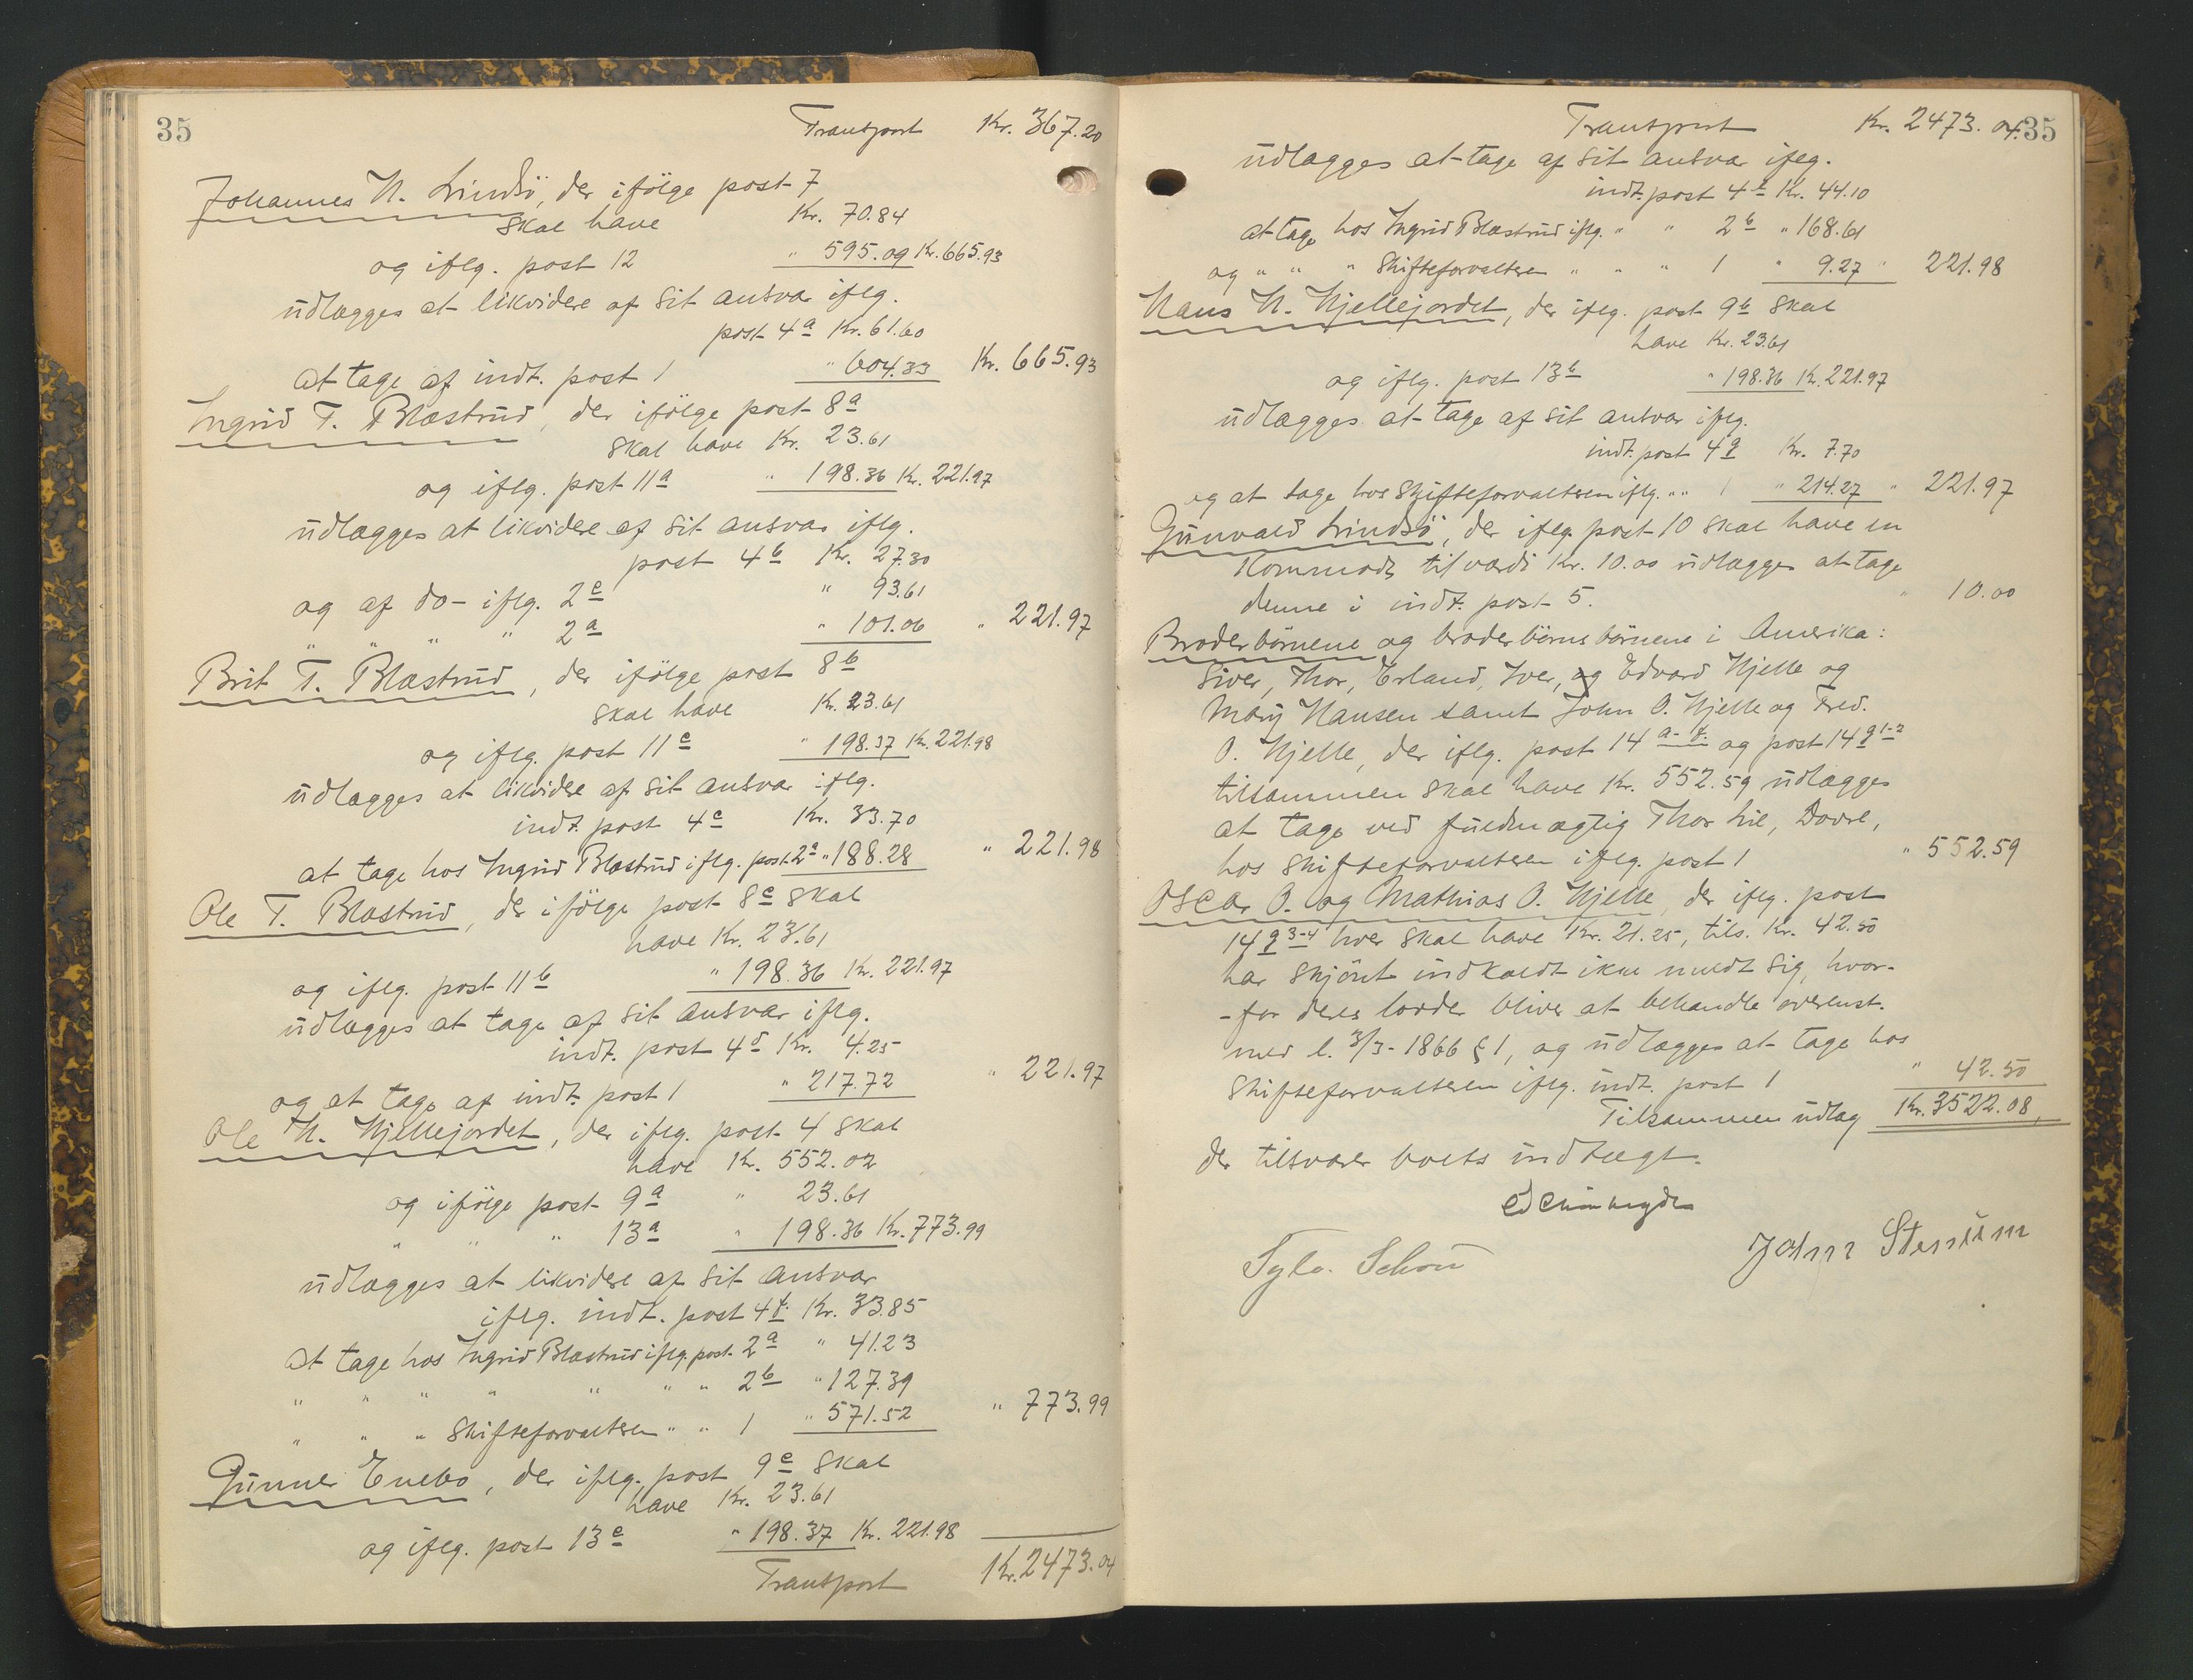 35
Transport Kr. 367.20
Johannes H. Lindsö, der ifölge post 7
skal have Kr. 70.84
og iflg. post 12 " 595.09 Kr. 665.93
udlægges at likvidere af sit ansvar iflg.
post 4a Kr. 61.60
at tage af indt. post 1 " 604.33 Kr. 665.93
Ingrid T. Blæstrud, der ifölge post 8a
skal have Kr. 23.61
og iflg. post 11a " 198.36 Kr. 221.97
udlægges at likvidere af sit ansvar iflg.
post 4b Kr. 27.30
og af do- iflg. 2c " 93.61
" " " 2a " 101.06 " 221.97
Brit T. Blæstrud, der ifölge post 8b
skal have Kr. 23.61
og iflg. post 11c " 198.37 Kr. 221.98
udlægges at likvidere af sit ansvar iflg.
indt. post 4c Kr. 33.70
at tage hos Ingrid Blæstrud iflg. post. 2a " 188.28 " 221.98
Ole T. Blæstrud, der ifölge post 8c skal
have Kr. 23.61
og iflg. post 11b " 198.36 Kr. 221.97
udlægges at tage af sit ansvar iflg.
indt. post 4d Kr. 4.25
og at tage af indt. post 1 " 217.72 " 221.97
Ole H. Hjellejordet, der iflg. post 4 skal
have Kr. 552.02
og ifölge post 9a " 23.61
" " " 13a " 198.36 Kr. 773.99
udlægges at likvidere af sit ansvar
iflg. indt. post 4f. Kr. 33.85
at tage hos Ingrid Blæstrud iflg. post. 2a " 41.23
" " " " " " " 2b " 127.39
" " " Skifteforvalteren " " 1 " 571.52 " 773.99
Gunner Enebo, der iflg. post 9c skal
have Kr. 23.61
og iflg. post 13c " 198.37 Kr. 221.98
Transport Kr. 2473.04
Transport Kr. 2473.04
35
udlægges at tage af sit ansvar iflg.
indt. post 4e Kr. 44.10
at tage hos Ingrid Blæstrud iflg. " " 2b " 168.61
og " " " Skifteforvalteren " " " 1 " 9.27 " 221.98
Hans H. Hjellejordet, der iflg. post 9b skal
have Kr. 23.61
og iflg. post 13b " 198.36 Kr. 221.97
udlægges at tage af sit ansvar iflg.
indt. post 4g Kr. 7.70
og at tage hos Skifteforvalteren iflg. " " 1 " 214.27 " 221.97
Gunvald Lindsö, der iflg. post 10 skal have en
kommode til værdi Kr. 10.00 udlægges at tage
denne i indt. post 5. " 10.00
Broderbörnene og broderbörnsbörnene i Amerika:
Siver, Thor, Erland, Iver, og Edvard Hjelle og
Mary Hansen samt John O. Hjelle og Fred.
O. Hjelle, der iflg. post 14 a-f. og post 14 g 1-2
tilsammen skal have Kr. 552.59 udlægges
at tage ved fuldmægtig Thor Lie, Dovre,
hos skifteforvalteren iflg. post 1 " 552.59
Oscar O. og Mathias O. Hjelle, der iflg. post
14 g 3-4 hver skal have Kr. 21.25, tils. Kr. 42.50
har skjönt indkaldt ikke meldt sig, hvor-
-for deres lodder bliver at behandle overenst.
med l. 3/3-1866 § 1, og udlægges at tage hos
skifteforvalteren iflg. indt. post 1 " 42.50
Tilsammen udlag Kr. 3522.08,
der tilsvarer boets indtægt.
Sylv. Schou John Stenum